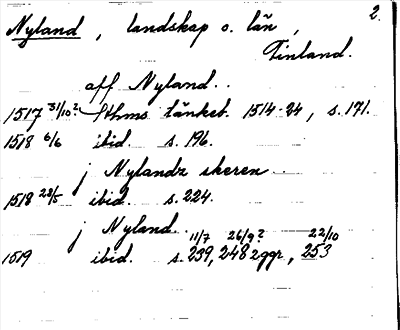 2.
Nyland, landskap o. län,
Finland.
aff Nyland..
1517 31/10? Sthms tänkeb. 1514-24, s. 171.
1518 6/6 ibid. s. 196.
j Nylandz skeren
1518 28/5 ibid. s. 224.
j Nyland.
11/7 26/9? 22/10
1519 ibid. s. 239, 248 2ggr, 253